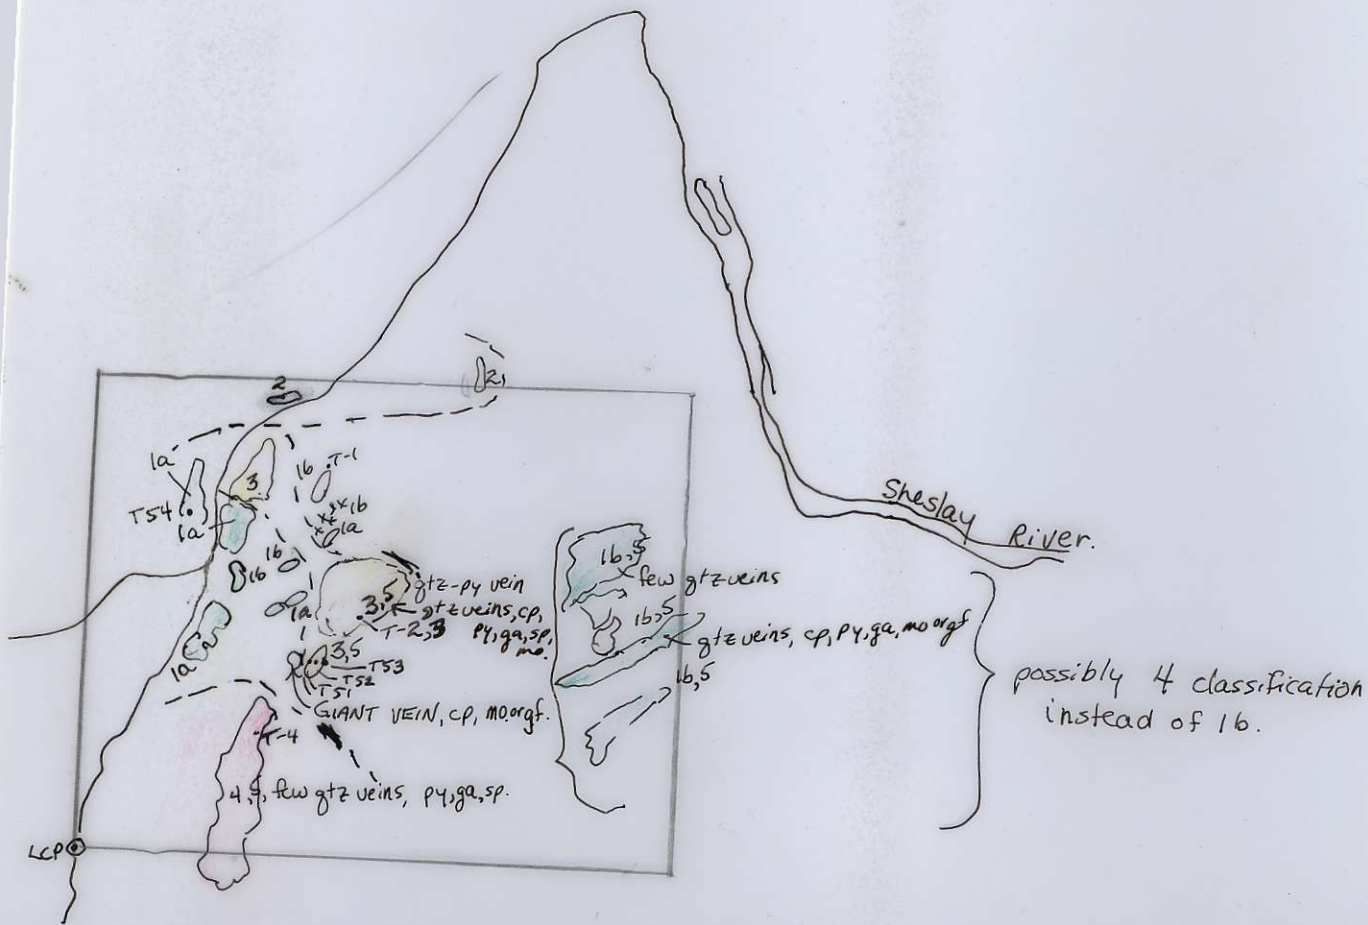 2
2
1a
1b
T-1
3
T54
1a
xx1b
1a
1b
1b
1a
1a
qtz-py vein
3,5
qtz veins, cp,
py, ga, sp,
mo.
T-2,3
3,5
T53
T52
T51
GIANT VEIN, cp, mo or gf.
T-4
few qtz veins, py, ga, sp.
LCP
1b,5
few qtz veins
1b,5
qtz veins, cp, py, ga, mo or gf
1b,5
Sheslay River.
possibly 4 classification
instead of 1b.